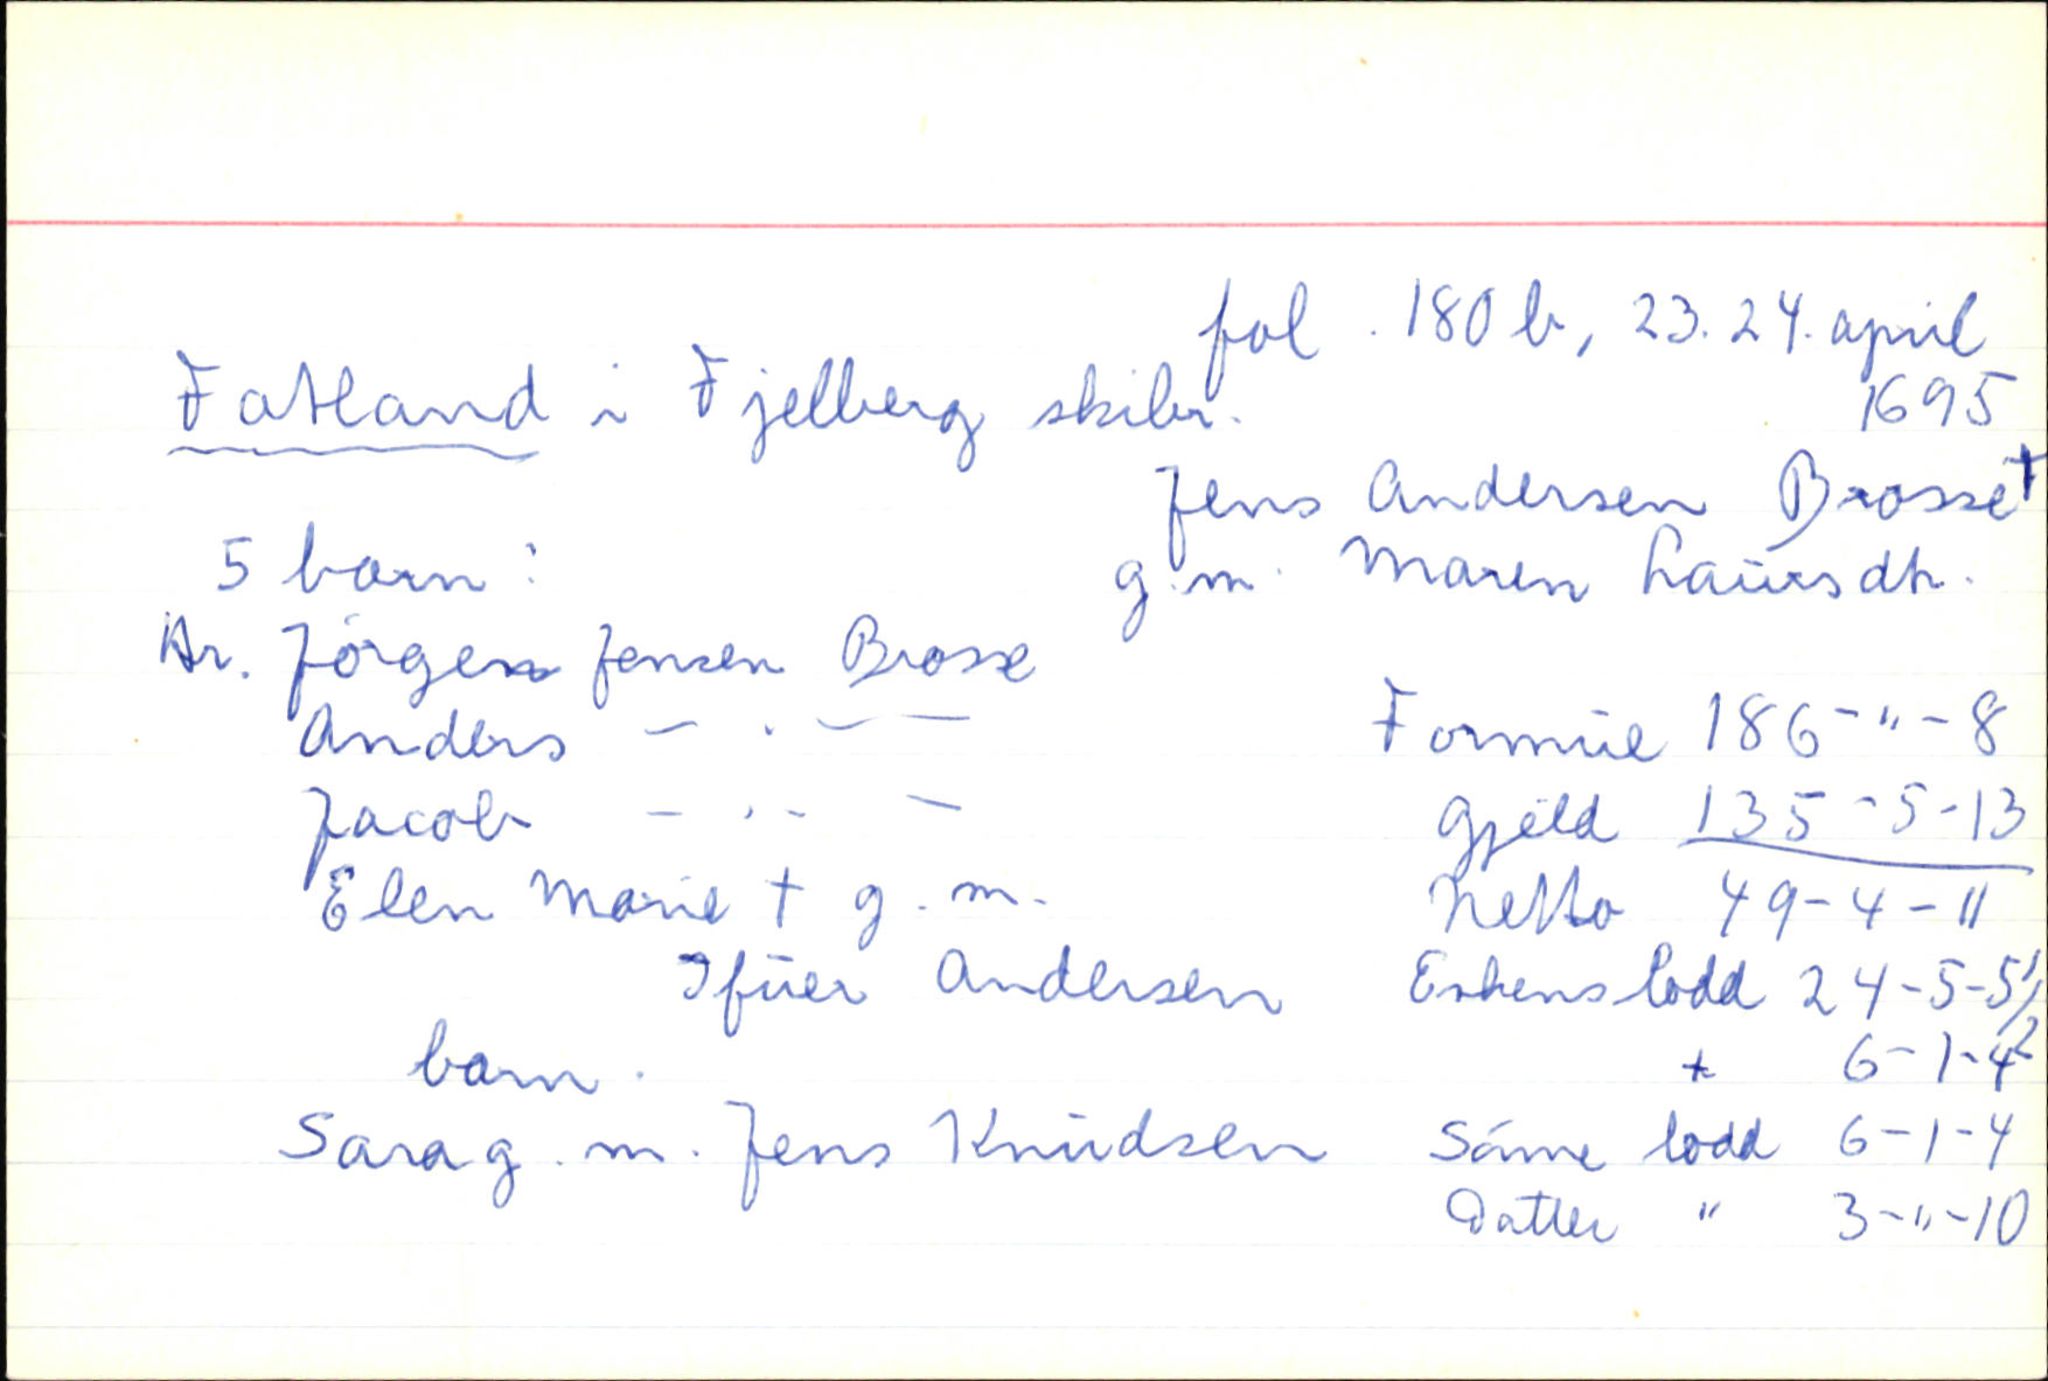 fol. 180 b, 23. 24. april
1695
Fatland i Fjelberg skibr.
Jens Andersen Brosse †
g.m. Maren Laursdtr.
5 barn:
Hr. Jörgen Jensen Brosse
Anders — " —
Jacob — " —
Elen Marie † g.m.
Ifuer Andersen
barn.
Sara g.m. Jens Knudsen
Formue 186-"-8
Gjeld 135-5-13
Netto 49-4-11
Enkens lodd 24-5-5 1/2
+ 6-1-4
Sönne lodd 6-1-4
Datter " 3-"-10